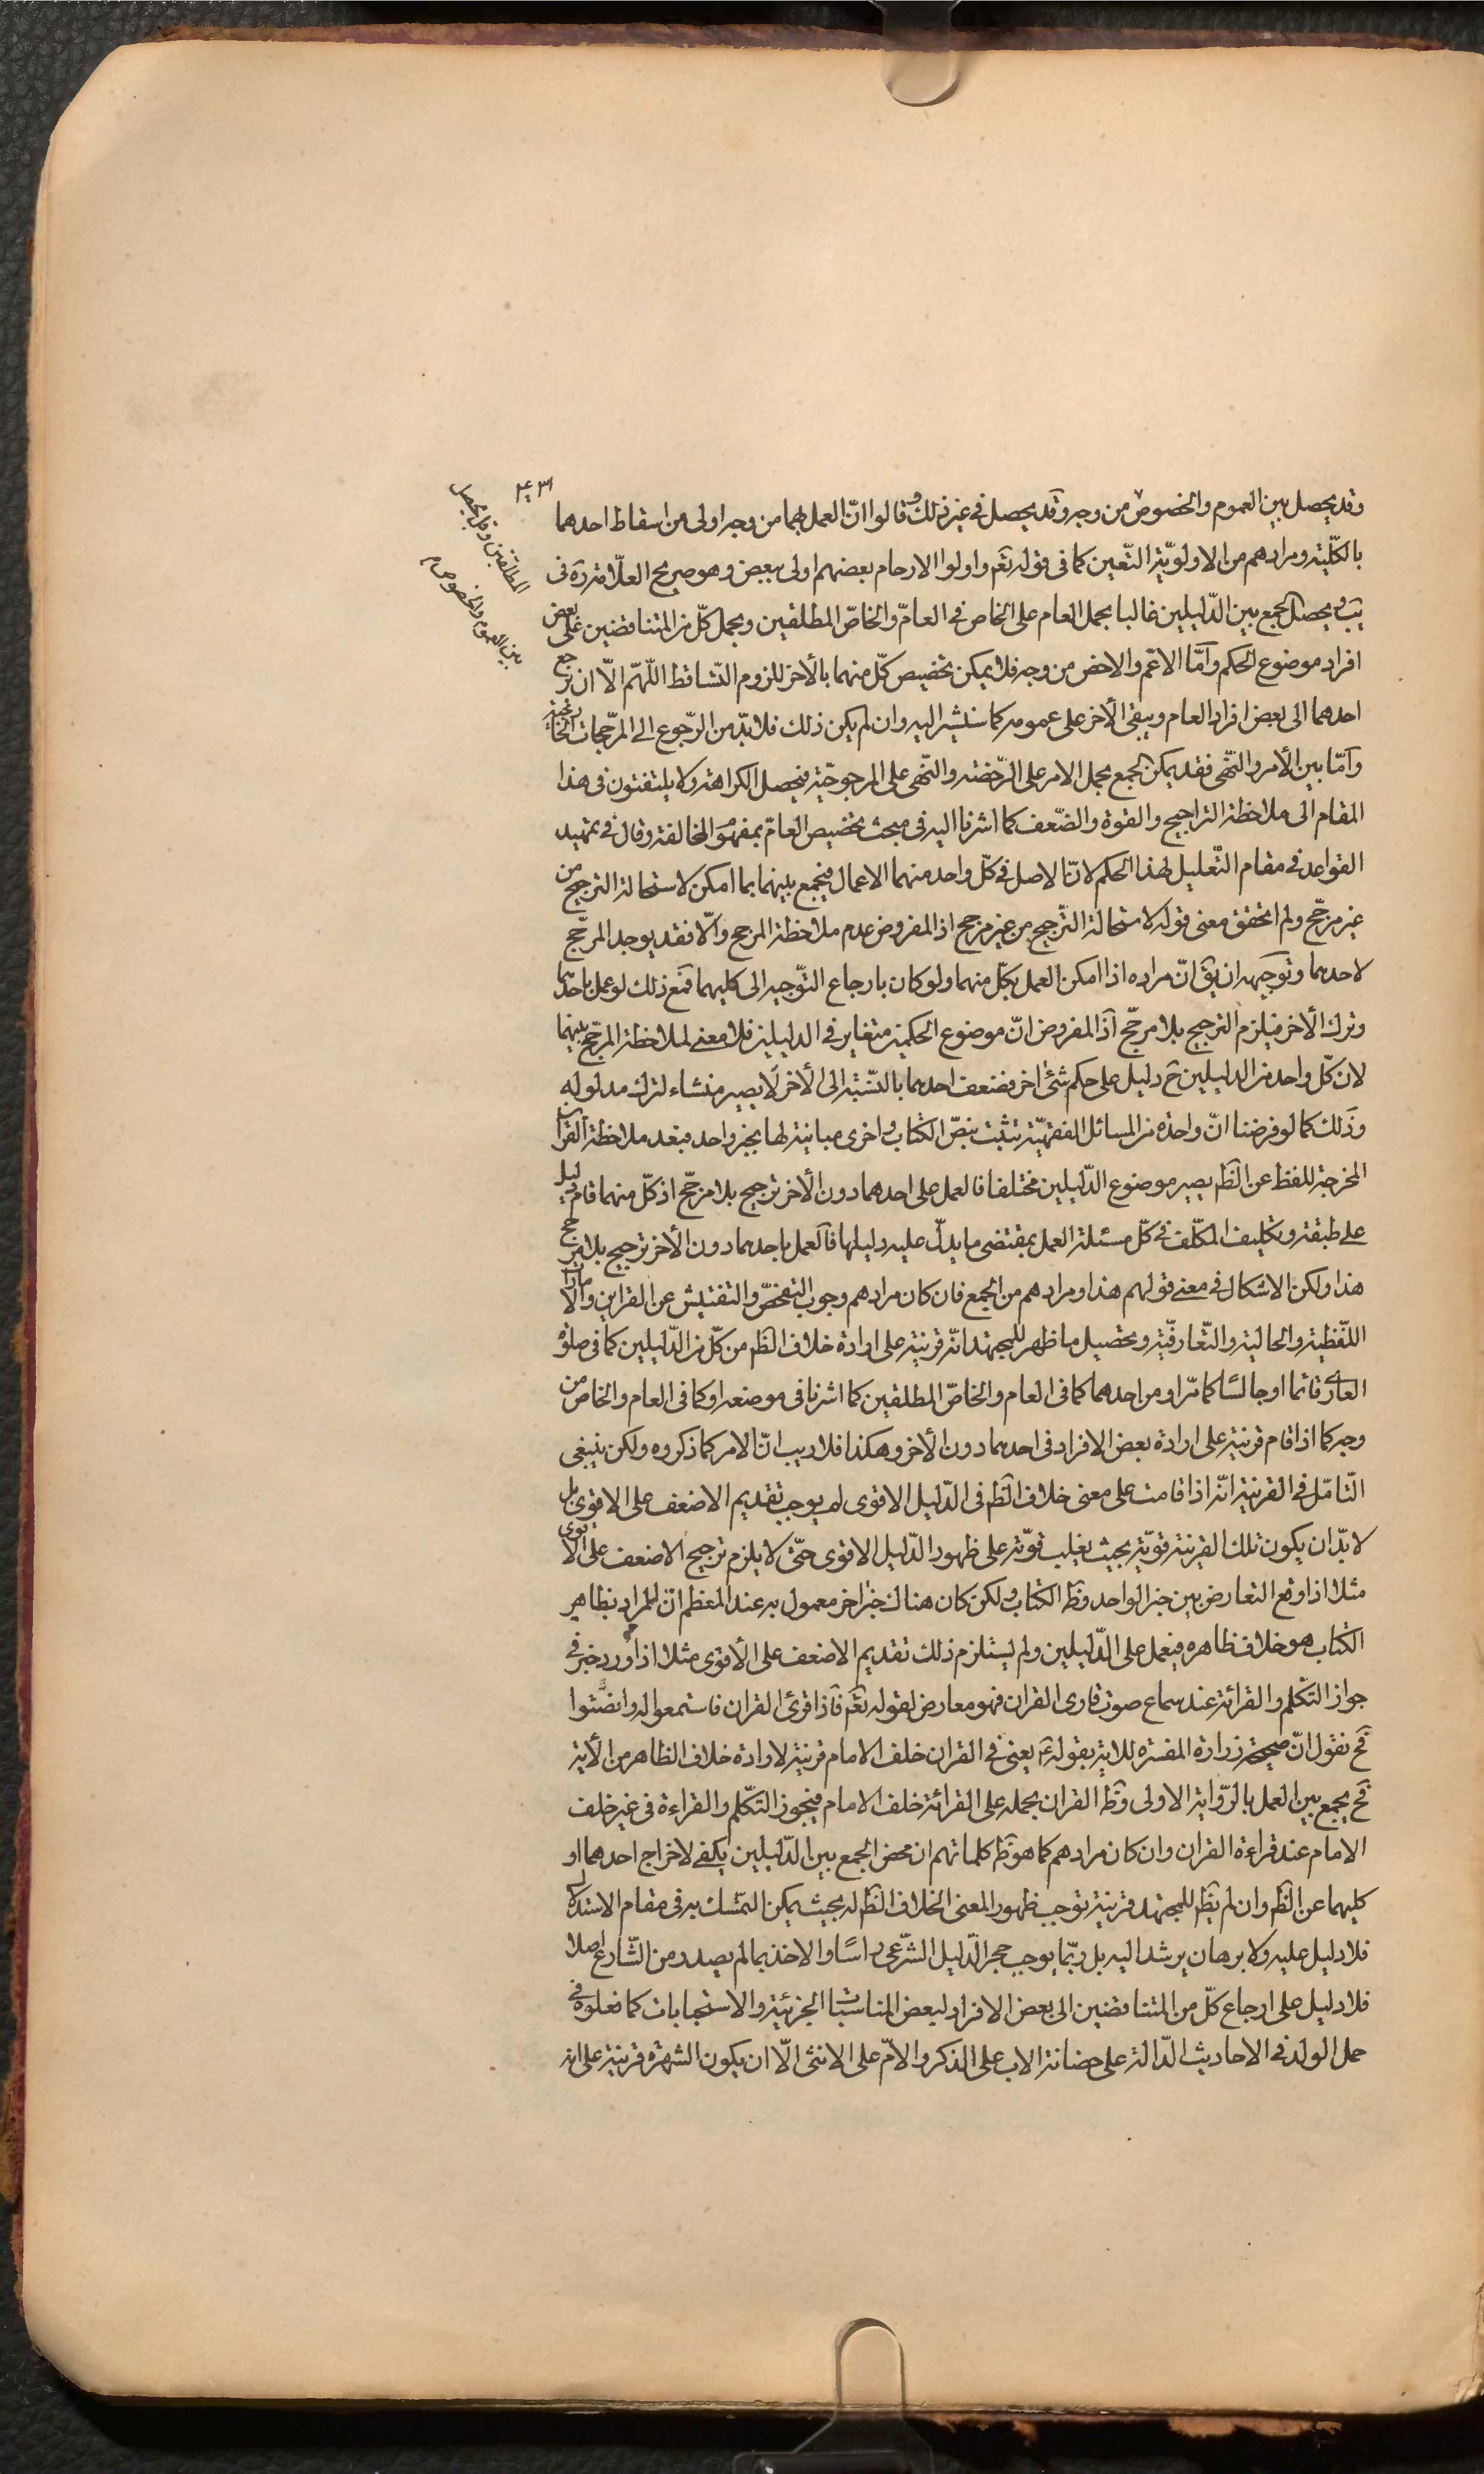 ٤٣١
وقد يحصل بين العموم والخصوص من وجه وقد يحصل فى غير ذلك وقالوا انّ العمل بهما من وجه اولى من اسقاط احدهما
المطلقين وقد يحصل
بين العموم والخصوص م
بالكلّية ومرادهم من الاولويّة التّعيين كما فى قوله تعٓ واولوا الارحام بعضهم اولى ببعض وهو صريح العلّامة ره فى
يب ويحصل الجمع بين الدّليلين غالبا بحمل العام على الخاص فى العامّ والخاصّ المطلقين وبحمل كلّ من المتناقضين على بعض
افراد موضوع الحكم وامّا الاعّم والاخص من وجه فلا يمكن تخصيص كلّ منهما بالأخر للزوم التّساقط اللّهمّ الّا ان يرجع
احدهما الى بعض افراد العام ويبقى الأخر على عمومه كما سنشير اليه وان لم يكن ذلك فلا بدّ من الرّجوع الى المرجّحات الخارجية
وامّا بين الأمر والنّهى فقد يمكن الجمع بحمل الامر على الرّخصة والنّهى على المرجوحيّة فيحصل الكراهة ولا يلتفتون فى هذا
المقام الى ملاحظة التراجيح والقوة والضّعف كما اشرنا اليه فى مبحث تخصيص العامّ بمفهوم المخالفة وقال فى تمهيد
القواعد فى مقام التّعليل لهذا الحكم لانّ الاصل فى كلّ واحد منهما الاعمال فيجمع بينهما بما امكن لاستحالة الترجيح من
غير مرجّح ولم اتحقق معنى قوله لاستحالة التّرجيح من غير مرجح اذ المفروض عدم ملاحظة المرجح والّا فقد يوجد المرجّح
لاحدهما وتوجيهه ان يقٓ انّ مراده اذا امكن العمل بكلّ منهما ولو كان بارجاع التّوجيه الى كليهما فمع ذلك لو عمل باحدهما
وترك الأخر فيلزم الترجيح بلا مرجّح اذ المفروض انّ موضوع الحكمين متغاير فى الدليلين فلا معنى لملاحظة المرجّح بينهما
لان كلّ واحد من الدليلين حٓ دليل على حكم شئ اخر فضعف احدهما بالنّسبة الى الأخر لا يصير منشاء لترك مدلوله
وذلك كما لو فرضنا انّ واحدة من المسائل الفقهيّة تثبت بنصّ الكتاب واخرى مباينة لها بخبر واحد فبعد ملاحظة القرآئن
المخرجة للفظ عن الظٓ يصير موضوع الدّليلين مختلفا فالعمل على احدهما دون الأخر ترجيح بلا مرجّح اذ كلّ منهما قام دليل
على طبقه وتكليف المكلّف فى كلّ مسئلة العمل بمقتضى ما يدلّ عليه دليلها فالعمل باحدهما دون الأخر ترجيح بلا مرجح
هذا ولكن الاشكال فى معنى قولهم هذا ومرادهم من الجمع فان كان مرادهم وجوب التفحّص والتفتيش عن القراين والامارات
اللّفظية والحالية والتّعارفيّة وتحصيل ما ظهر للمجتهد انّه قرينة على ارادة خلاف الظٓ من كلّ من الدّليلين كما فى صلوة
العارى قائما او جالسًا كما مّر او من احدهما كما فى العام والخاصّ المطلقين كما اشرنا فى موضعه او كما فى العام والخاص من
وجه كما اذا قام قرينة على ارادة بعض الافراد فى احدهما دون الأخر وهكذا فلا ريب انّ الامر كما ذكروه ولكن ينبغى
التّامّل فى القرينة انّه اذا قامت على معنى خلاف الظٓ فى الدّليل الاقوى لم يوجب تقديم الاضعف على الاقوى بل
لا بدّ ان يكون تلك القرينة قويّة بحيث يغلب قوّته على ظهور الدّليل الاقوى حتّى لا يلزم ترجيح الاضعف على الاقوى
مثلا اذا وقع التعارض بين خبر الواحد وظٓ الكتاب ولكن كان هناك خبر اخر معمول به عند المعظم انّ المراد بظاهر
الكتاب هو خلاف ظاهره فيعمل على الدّليلين ولم يستلزم ذلك تقديم الاضعف على الأقوى مثلا اذا ورد خبر فى
جواز التكلم والقرائة عند سماع صوت قارى القران فهو معارض لقوله تعٓ فاذا قرئ القران فاستمعوا له وانصتوا
فحٓ نقول انّ صحيحة زرارة المفسّرة للاية بقوله عٓ يعنى فى القران خلف الامام قرينة لارادة خلاف الظاهر من الأية
فحٓ يجمع بين العمل بالرّواية الاولى وظٓ القران بحمله على القرائة خلف الامام فيجوز التكّلم والقراءة فى غير خلف
الامام عند قراءة القران وان كان مرادهم كما هو ظٓ كلماتهم ان محض الجمع بين الدّليلين يكفى لاخراج احدهما او
كليهما عن الظٓ وان لم يظٓ للمجتهد قرينة توجب ظهور المعنى الخلاف الظٓ له بحيث يمكن التمّسك به فى مقام الاستدلال
فلا دليل عليه ولا برهان يرشد اليه بل ربّما يوجب هجر الدّليل الشّرعى راسًا والاخذ بما لم يصدر من الشّارع اصلا
فلا دليل على ارجاع كلّ من المتناقضين الى بعض الافراد لبعض المناسبات الجزئية والاستحبابات كما فعلوه فى
حمل الولد فى الاحاديث الدّالة على حضانة الاب على الذكر والامّ على الانثى الّا ان يكون الشهرة قرينة على انه